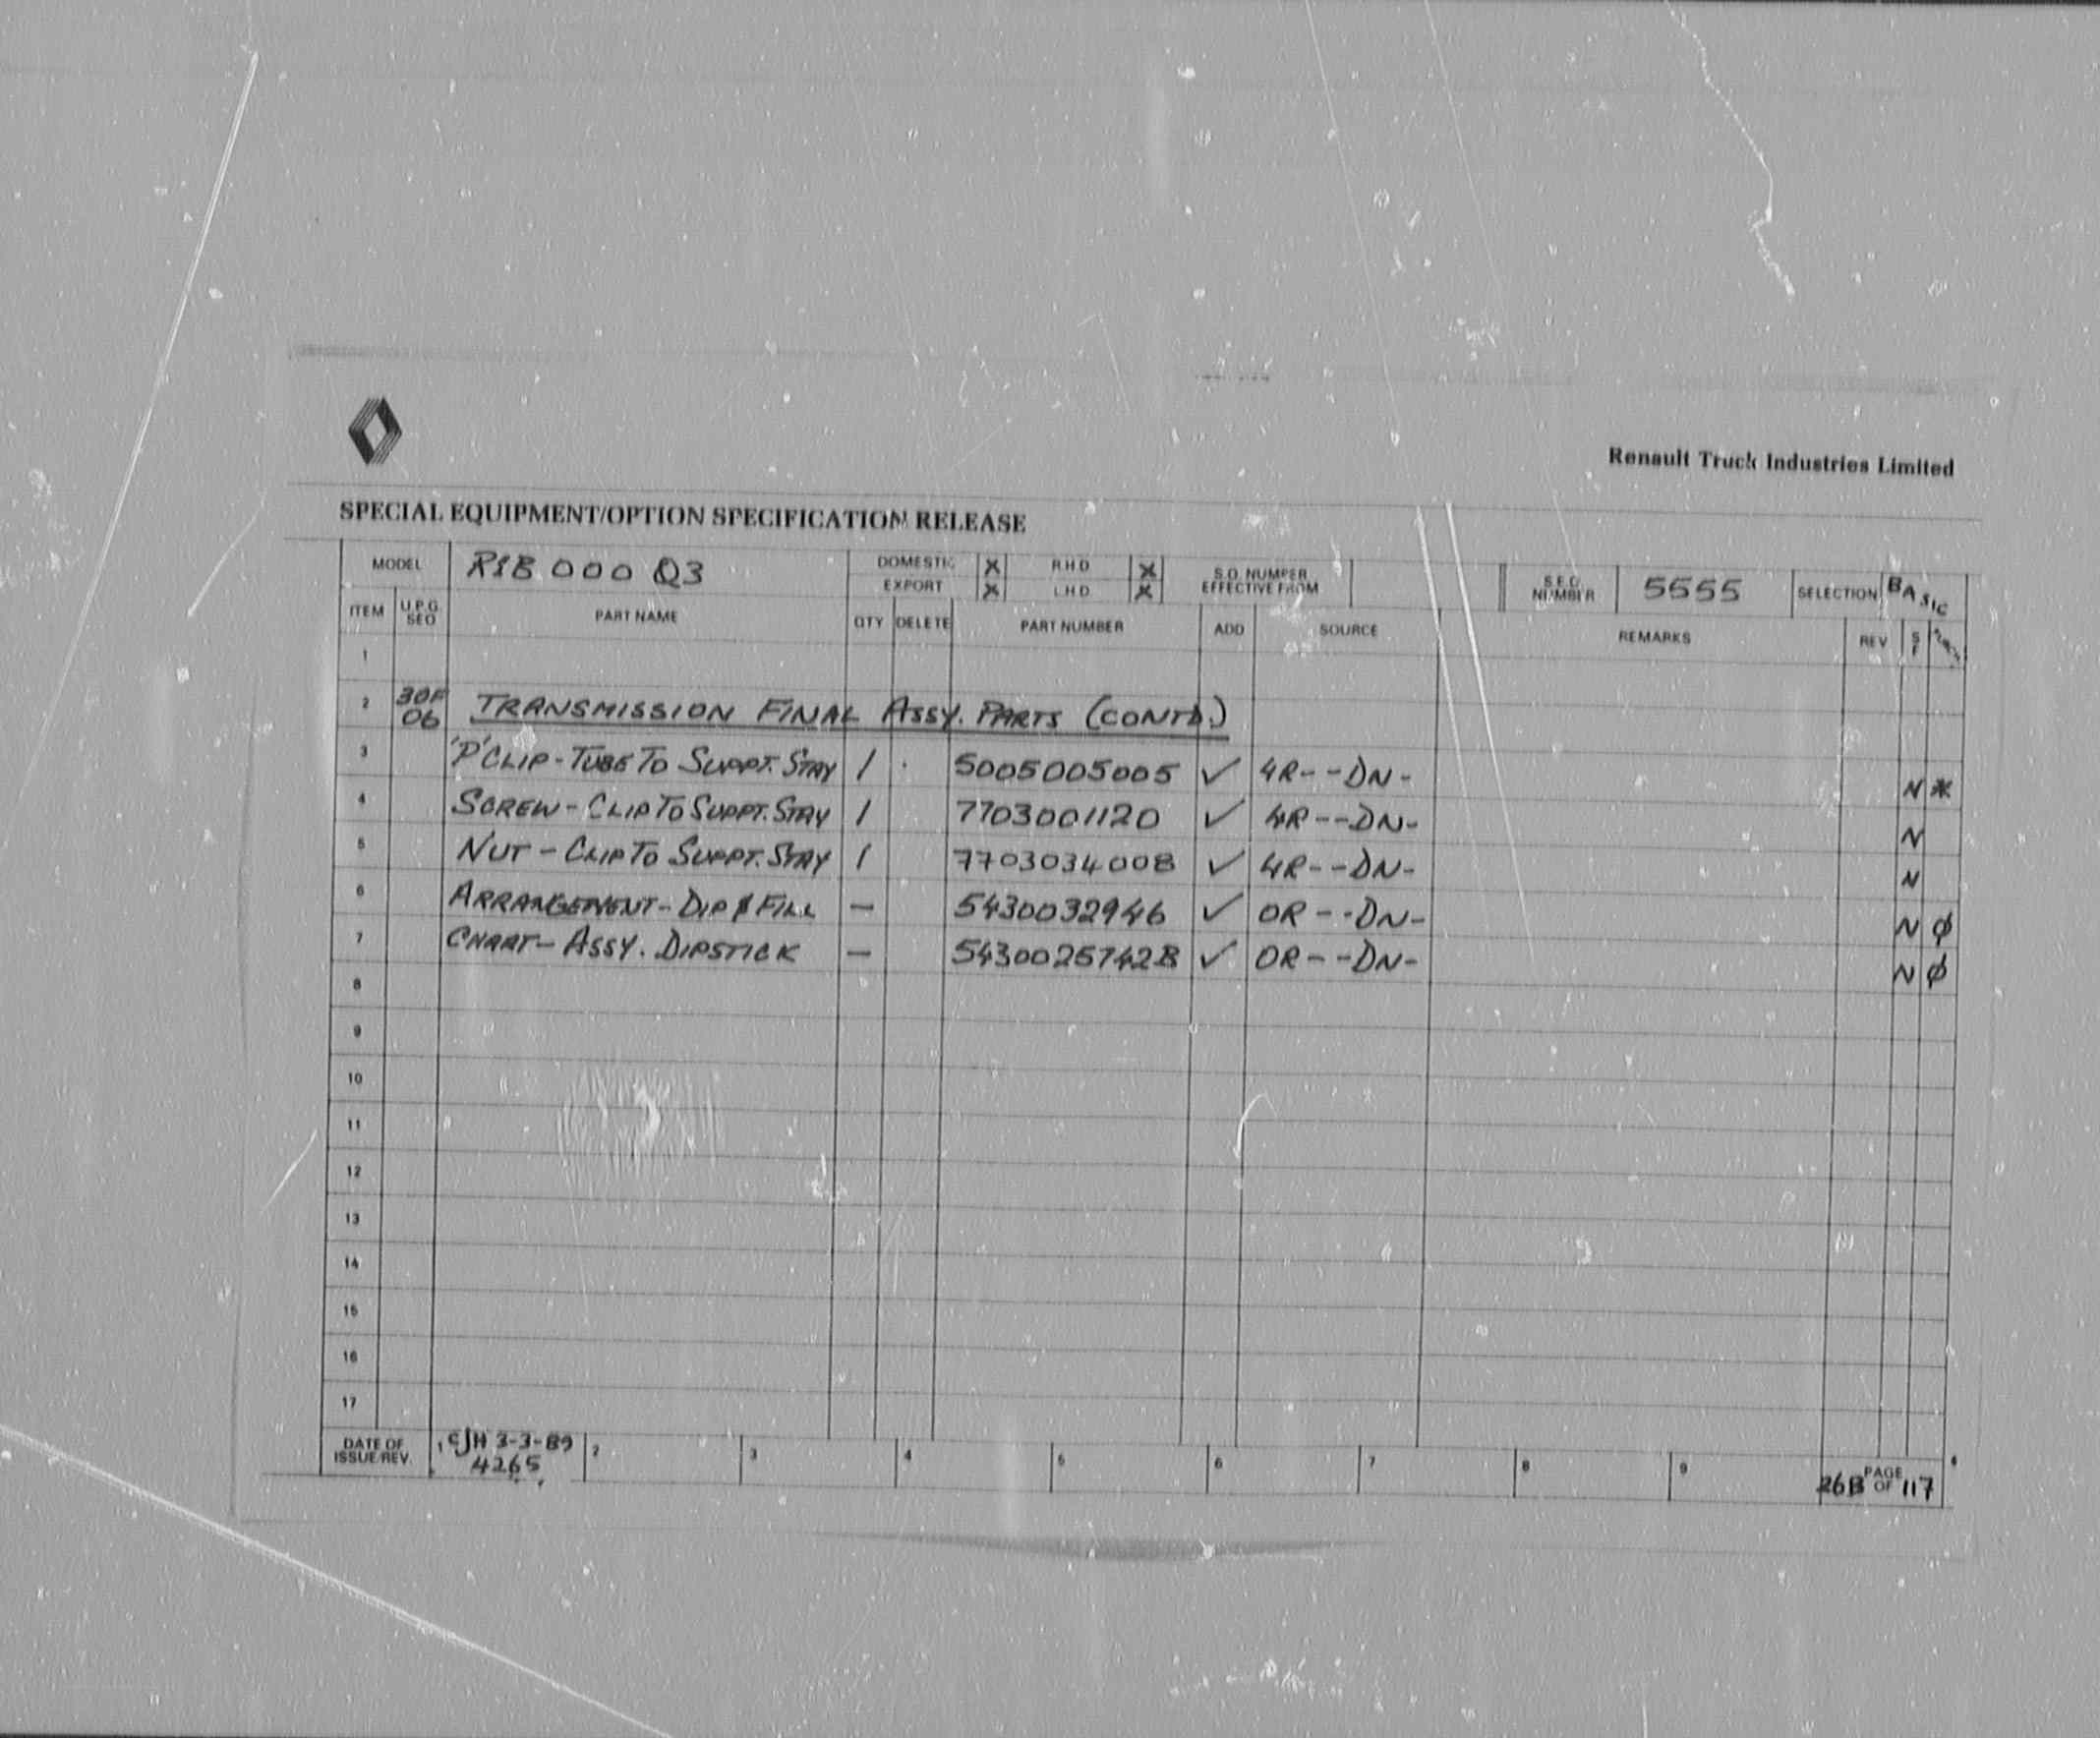 Renault Truck Industries Limited
SPECIAL EQUIPMENT/OPTION SPECIFICATION RELEASE
MODEL R1B 000 Q3 DOMESTIC X R.H.D X S.O. NUMBER EFFECTIVE FROM S.E.O. NUMBER 5555 SELECTION BASIC
EXPORT X L.H.D X
ITEM U.P.G. SEQ PART NAME QTY DELETE PART NUMBER ADD SOURCE REMARKS REV S F
1
2 30F 06 TRANSMISSION FINAL ASSY. PARTS (CONTD.)
3 'P' CLIP - TUBE TO SUPPT. STAY 1 5005005005 ✓ 4R--DN- N *
4 SCREW - CLIP TO SUPPT. STAY 1 7703001120 ✓ 4R--DN- N
5 NUT - CLIP TO SUPPT. STAY 1 7703034008 ✓ 4R--DN- N
6 ARRANGEMENT - DIP & FILL — 5430032946 ✓ OR--DN- N ϕ
7 CHART - ASSY. DIPSTICK — 5430025742B ✓ OR--DN- N ϕ
8
9
10
11
12
13
14
15
16
17
DATE OF ISSUE/REV. 1 CJH 3-3-89 4265 2 3 4 5 6 7 8 9 26B PAGE OF 117